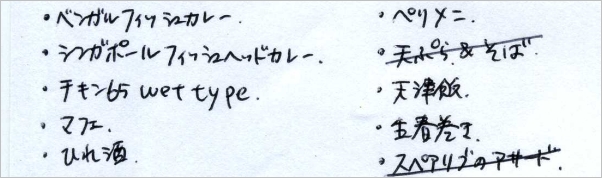 ・ベンガルフィッシュカレー.
・シンガポールフィッシュヘッドカレー.
・チキン65 wet type.
・マフェ.
・ひれ酒.
・ペリメニ.
・天ぷら&そば.
・天津飯.
・生春巻き.
・スペアリブのアサード.